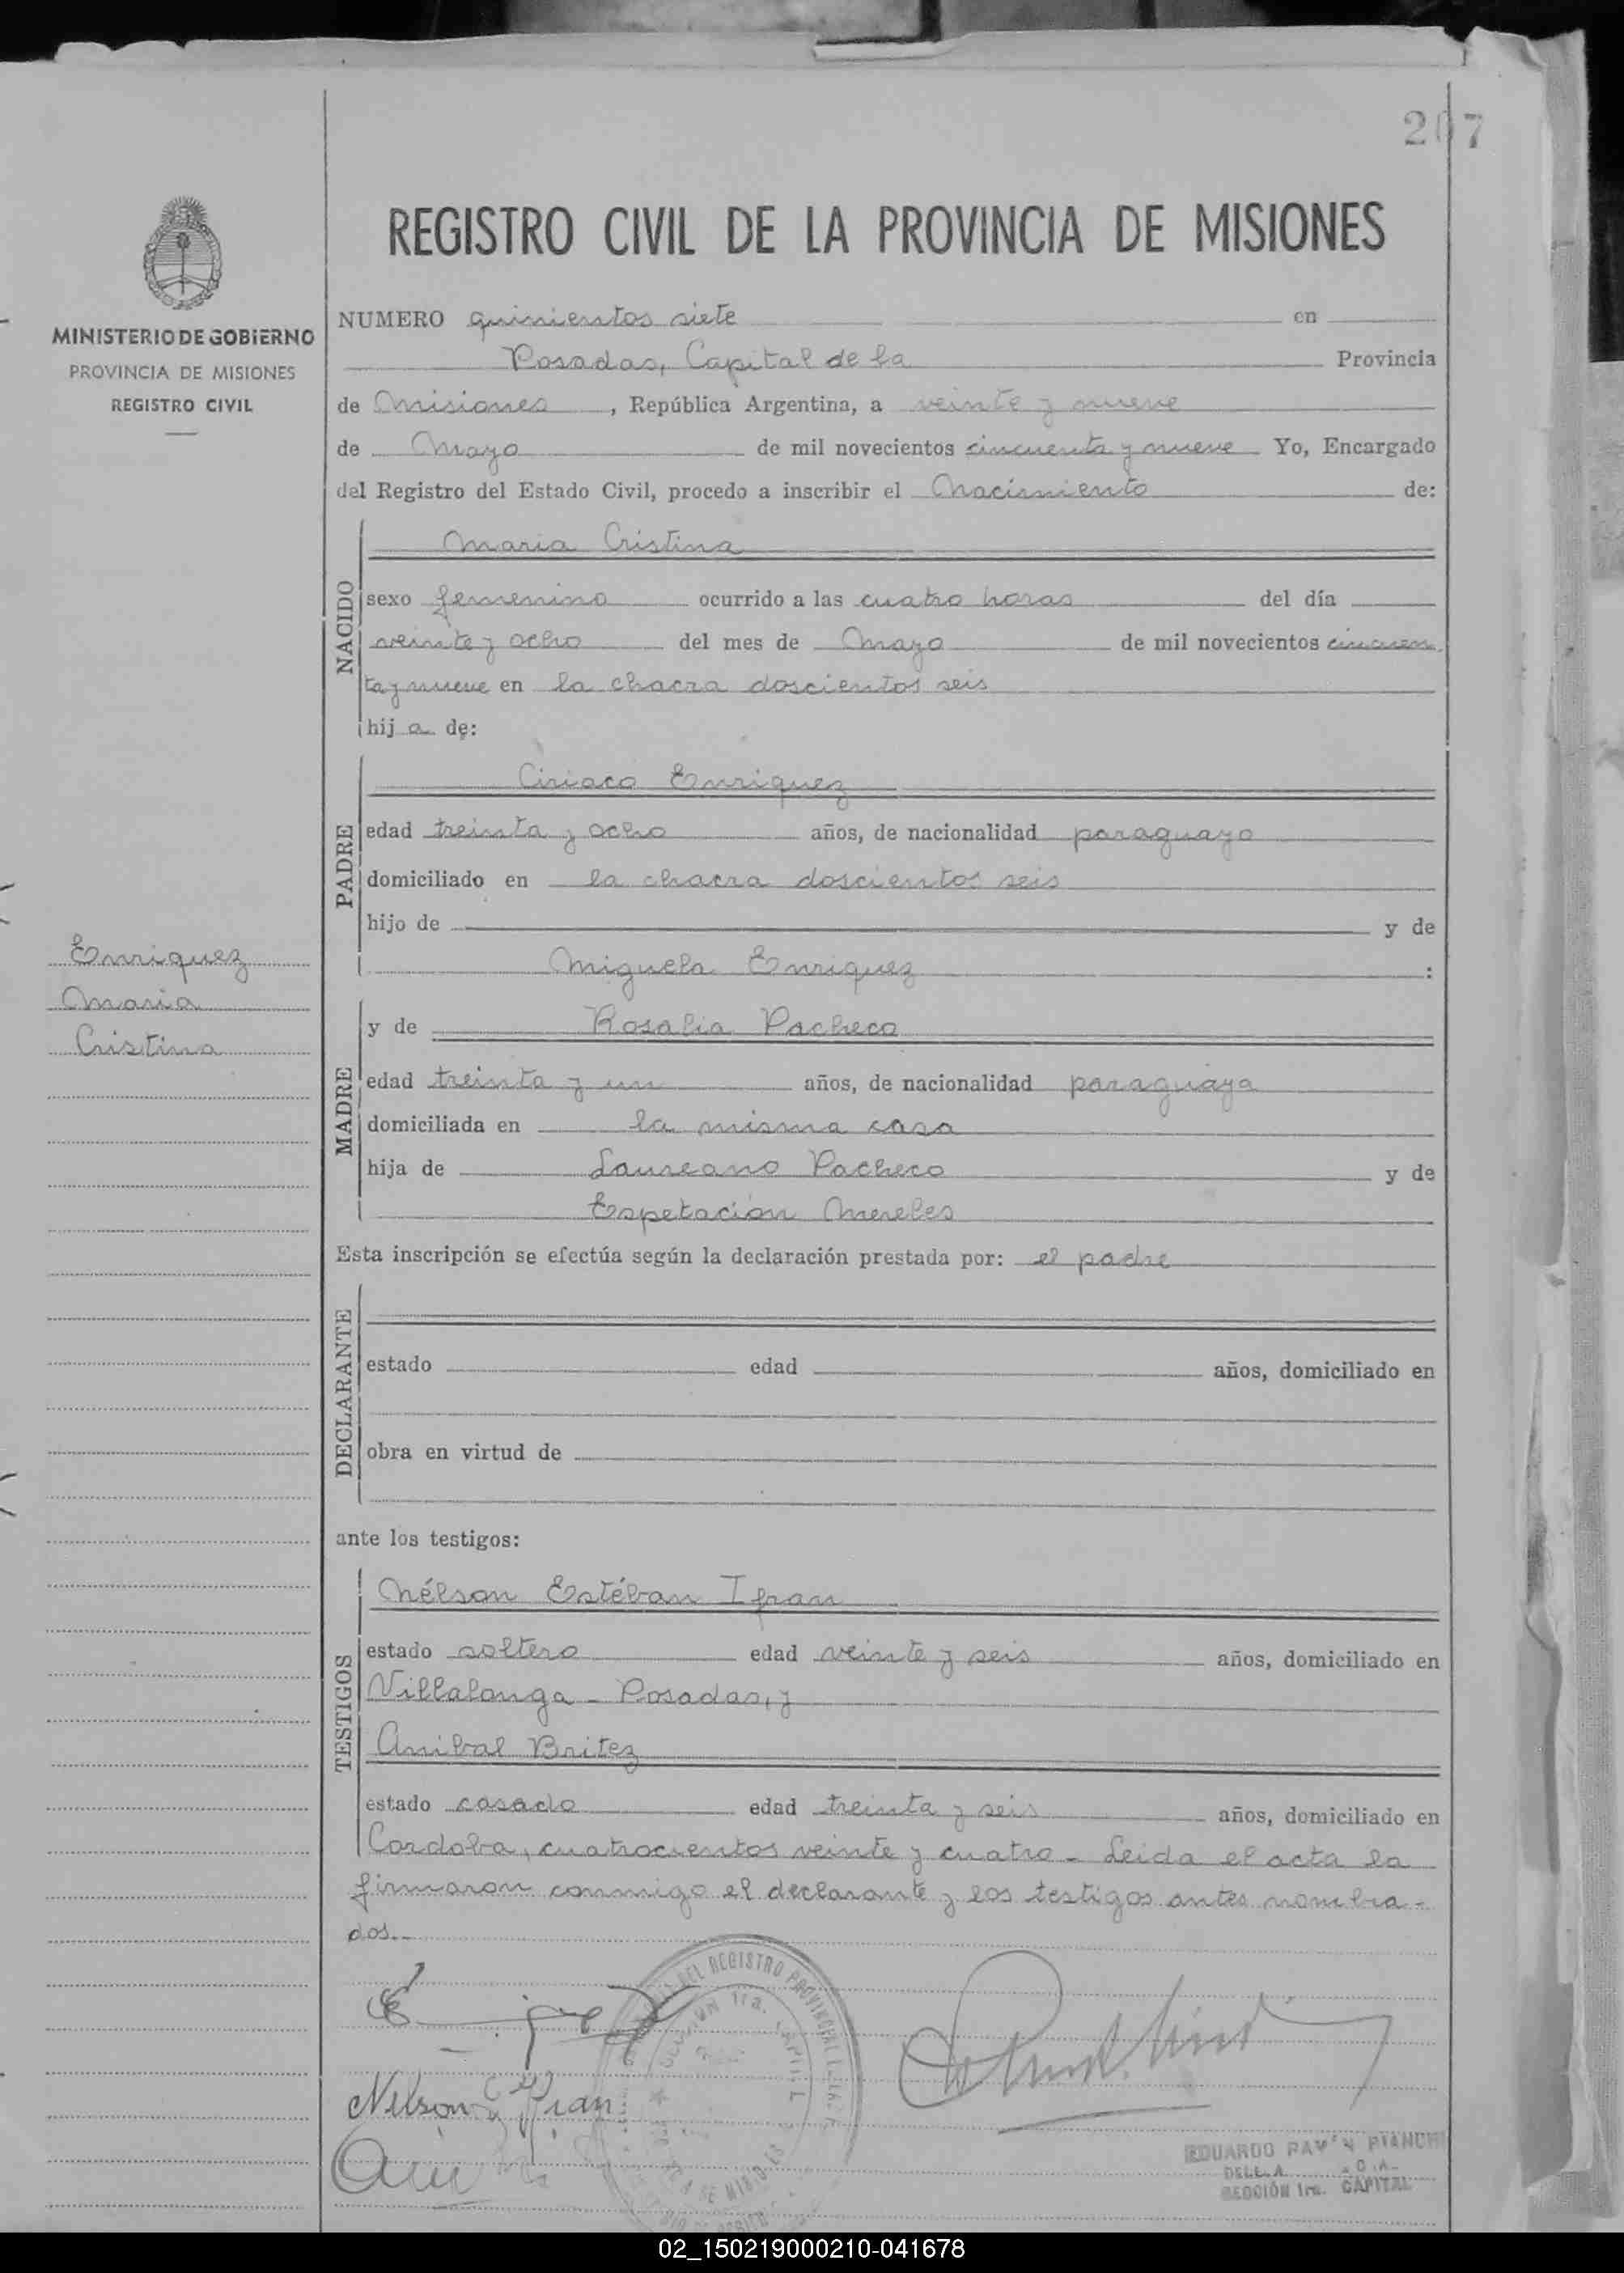 207
REGISTRO CIVIL DE LA PROVINCIA DE MISIONES
MINISTERIO DE GOBIERNO
PROVINCIA DE MISIONES
REGISTRO CIVIL
NUMERO quinientos siete en
Posadas, Capital de la Provincia
de Misiones, República Argentina, a veinte y nueve
de Mayo de mil novecientos cincuenta y nueve Yo, Encargado
del Registro del Estado Civil, procedo a inscribir el Nacimiento de:
NACIDO
Maria Cristina
sexo femenino ocurrido a las cuatro horas del día
veinte y ocho del mes de Mayo de mil novecientos cincuen
ta y nueve en la chacra doscientos seis
hija de:
PADRE
Ciriaco Enriquez
edad treinta y ocho años, de nacionalidad paraguayo
domiciliado en la chacra doscientos seis
hijo de y de
Miguela Enriquez :
Enriquez
Maria
Cristina
MADRE
y de Rosalia Pacheco
edad treinta y un años, de nacionalidad paraguaya
domiciliada en la misma casa
hija de Laureano Pacheco y de
Espetación Mereles
Esta inscripción se efectúa según la declaración prestada por: el padre
DECLARANTE
estado edad años, domiciliado en
obra en virtud de
ante los testigos:
TESTIGOS
Nélson Estéban Ifran
estado soltero edad veinte y seis años, domiciliado en
Villalonga - Posadas, y
Anibal Britez
estado casado edad treinta y seis años, domiciliado en
Cordoba, cuatrocientos veinte y cuatro - Leida el acta la
firmaron conmigo el declarante y los testigos antes nombra-
dos.-
DEL REGISTRO PROVINCIAL
1ra.
Nelson E Ifran
EDUARDO
SECCIÓN 1ra. CAPITAL
02_150219000210-041678